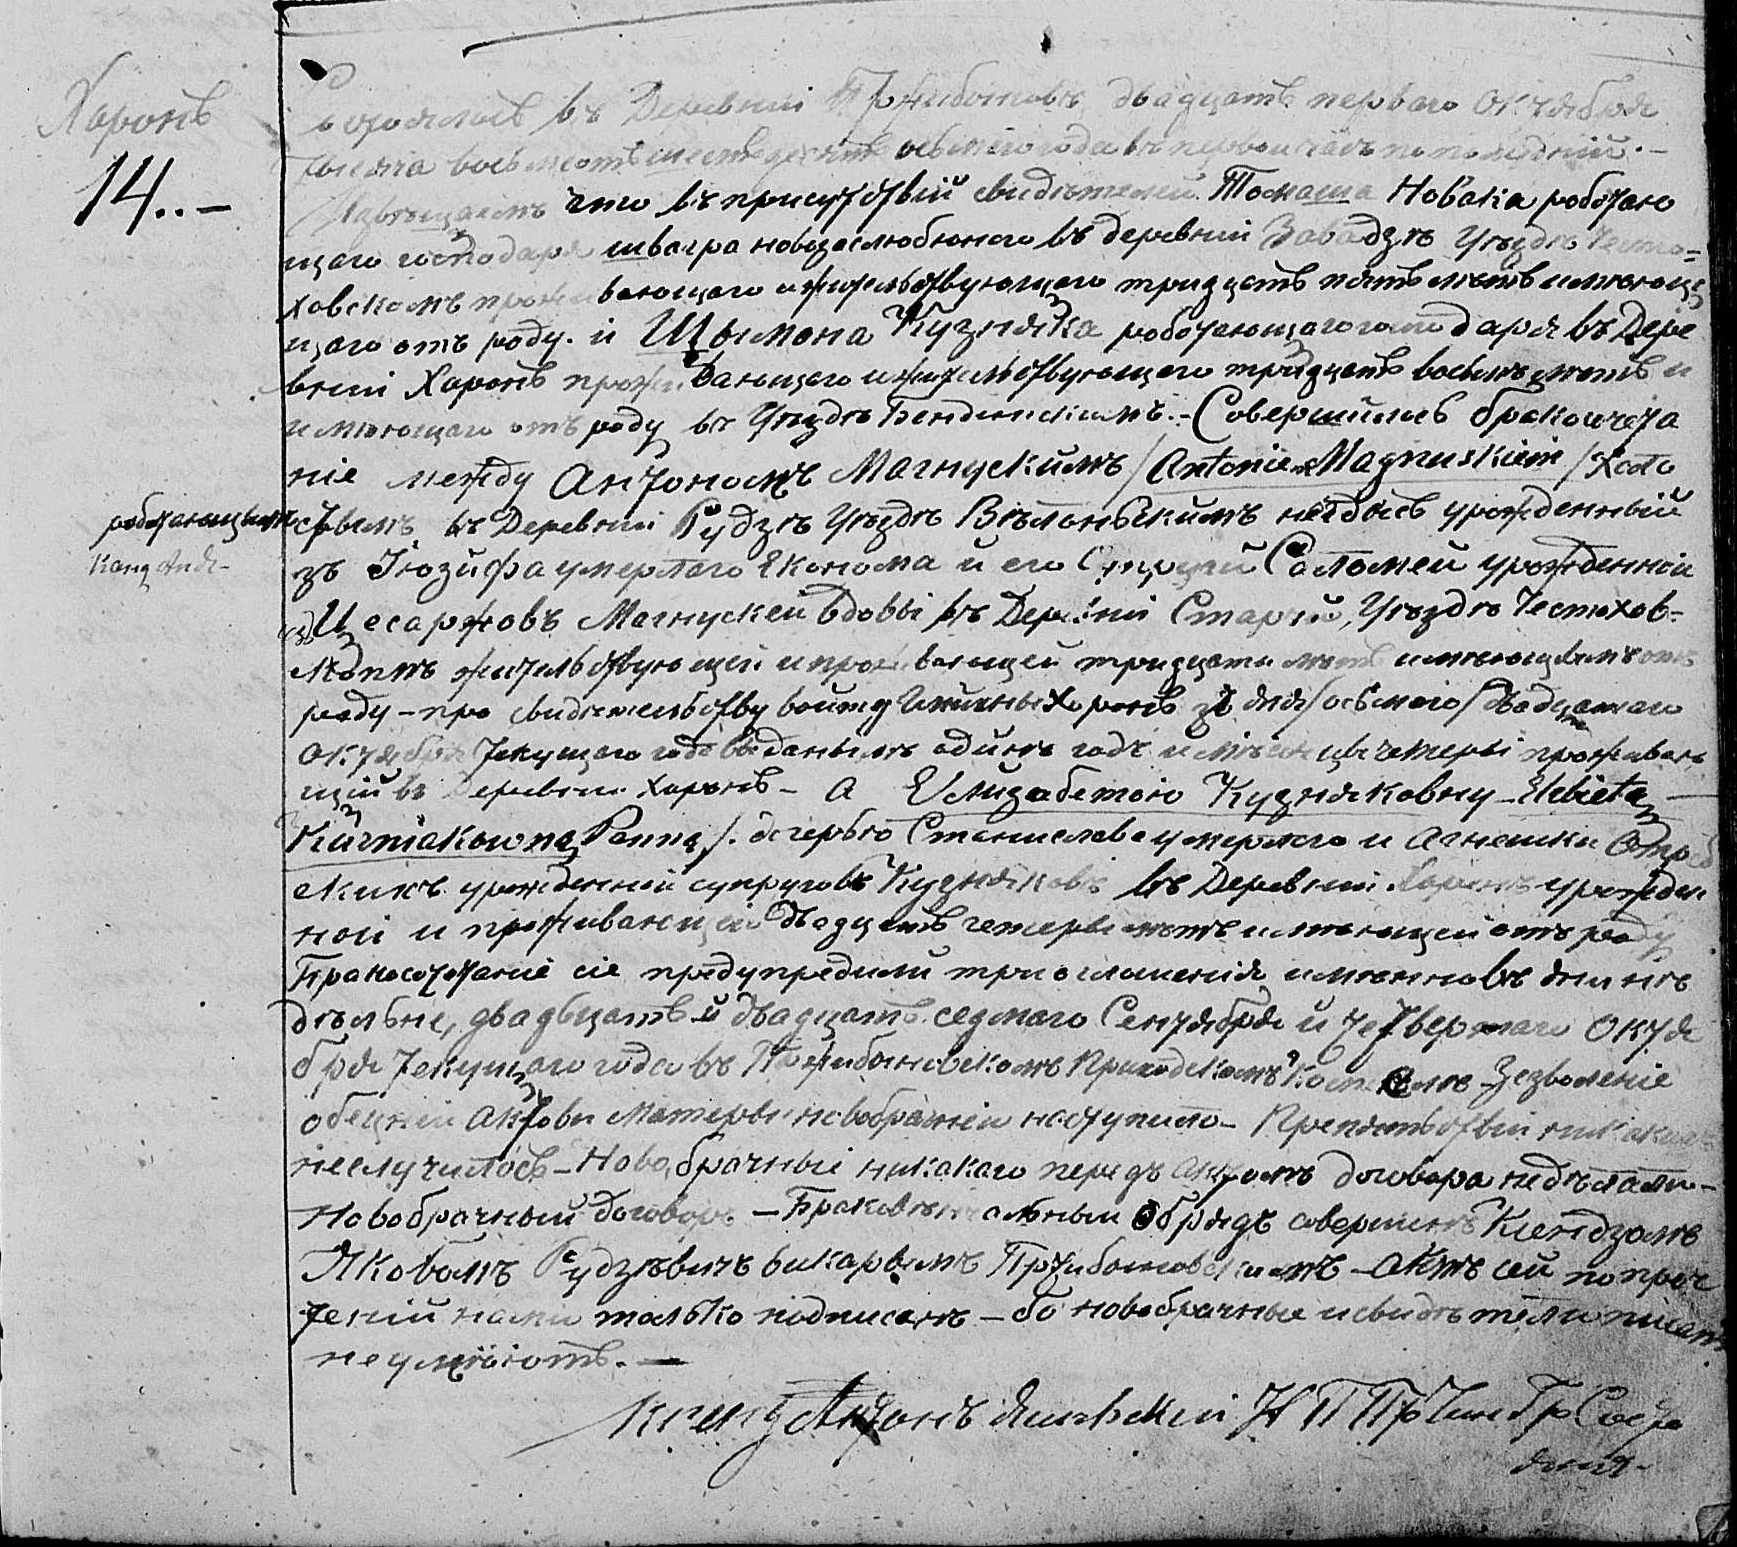 Харонъ
14..—
въ Деревнѣ двадцать перваго Октября
тысяча восемсотъ шестьдесятъ осьмаго года въ первой часъ по полудній.—
что въ присутствій свидѣтелей Томаша Новака роботаю
щаго господаря швагра въ деревнѣ Завадзѣ Уѣздѣ Често=
ховскомъ проживающаго и жительствующаго тридцать пять лѣтъ имѣюще
щаго отъ роду. и Щымона Кузняка роботающаго господаря въ Дере
вніи Харонъ проживающаго и жительствующаго тридцать восемъ лѣтъ и
имѣющаго отъ роду въ Уѣздѣ Бендинскимъ.— Совершилось бракосочета
ніе между Антономъ Магнускимъ /Antonim Magnuskiem/ Холо
роботающимъ
стымъ въ Деревніи Рудзѣ Уѣздѣ Вѣлоньскимъ урожденный
зъ Іозифа умерлаго Економа и его Супруги Саломеи урожденной
Цесаржовъ Магнускей вдовы въ Деревніи Старчи, Уѣздѣ Честохов-
жительствующей и проживающей тридцати лѣтъ имѣющимъ отъ
роду — про свидѣтельству войта Гмины Харонъ зъ дня /осьмаго/ двадцатаго
Октября текущаго года выданымъ одинъ годъ и мѣсяцы четеры проживаю
щій въ Деревніи Харонъ — А Елизабетою Кузняковну — Elżbieta
Kuźniakowną Panną /. дочерью Станислава умерлаго и Агнешки
урожденной супруговъ Кузняковъ въ Деревніи Харонъ урожден
ной и проживающей двадцать четеры лѣтъ имѣющей отъ роду
Бракосочетаніе сіе предупредили три оглашенія имѣнно въ дни не
дѣльне, двадцать и двадцать седмаго Сентября и четвертаго Октя
бря текущаго года въ Пржибыновскомъ Приходскомъ Костелѣ Зезволеніе
обецней Актови Матеры новобрачней наступило — Препятствій никакихъ
неслучилось — Новобрачные никакаго передъ Актомъ договора недѣлали —
Новобрачный договоръ — обрядъ совершенъ Ксендзомъ
Яковомъ Рудзѣвичъ викарымъ Пржибыновскимъ — Актъ сей по проч
теній нами только подписанъ — бо новобрачные и свидѣтели писать
неумѣютъ. —
Ксендз Антонъ